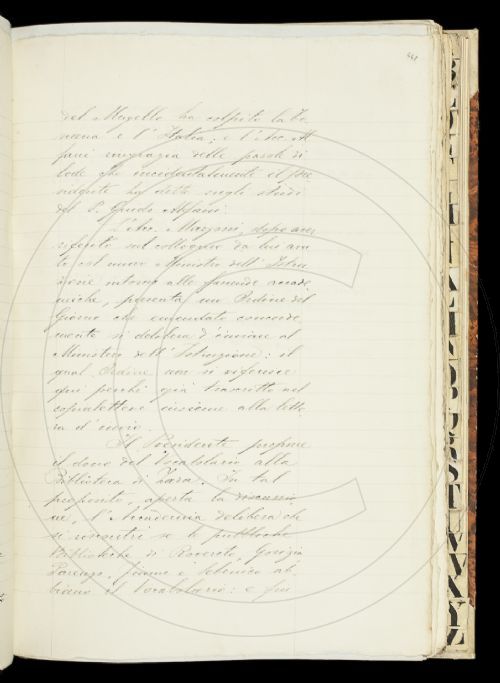 441
del Mugello ha colpito la To
scana e l'Italia; e l'Acc. Al
fani ringrazia delle parole di
lode che incidentalmente il Pre
sidente ha detto sugli studi
del S. Guido Alfani.
L'Acc. Mazzoni, dopo aver
riferito sul colloquio da lui avu
to col nuovo Ministro dell'Istru
zione intorno alle faccende accade
miche, presenta un Ordine del
Giorno che emendato concorde
mente si delibera d'inviare al
Ministro dell'Istruzione: il
qual Ordine non si riferisce
qui perchè già trascritto nel
copialettere insieme alla lette
ra d'invio.
Il Presidente propone
il dono del Vocabolario alla
Biblioteca di Zara. In tal
proposito, aperta la discussio
ne, l'Accademia delibera che
si riscontri se le pubbliche
Biblioteche di Rovereto, Gorizia
Parenzo, Fiume e Sebenico ab
biano il Vocabolario: e fra